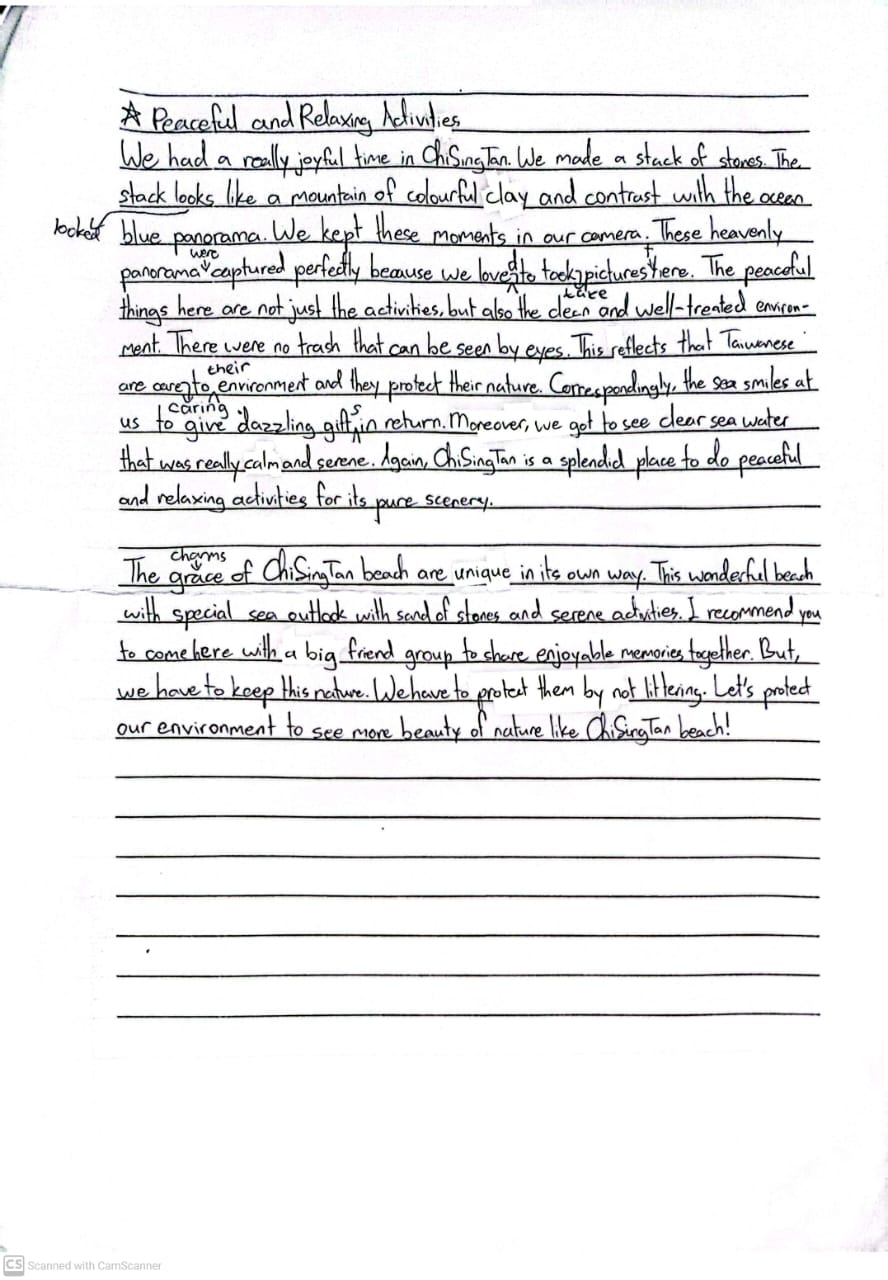 ☆ Peaceful and Relaxing Activities
We had a really joyful time in ChiSingTan. We made a stack of stones. The
stack looks like a mountain of colourful clay and contrast with the ocean
looked
blue panorama. We kept these moments in our camera. These heavenly
were
panorama captured perfectly because we loved to took pictures there. The peaceful
take
things here are not just the activities, but also the clean and well-treated environ-
ment. There were no trash that can be seen by eyes. This reflects that Taiwanese
their
are care to environment and they protect their nature. Correspondingly, the sea smiles at
caring
us to give dazzling gifts in return. Moreover, we got to see clear sea water
that was really calm and serene. Again, ChiSingTan is a splendid place to do peaceful
and relaxing activities for its pure scenery.
charms
The grace of ChiSingTan beach are unique in its own way. This wonderful beach
with special sea outlook with sand of stones and serene activities. I recommend you
to come here with a big friend group to share enjoyable memories together. But,
we have to keep this nature. We have to protect them by not littering. Let's protect
our environment to see more beauty of nature like ChiSingTan beach!
CS Scanned with CamScanner